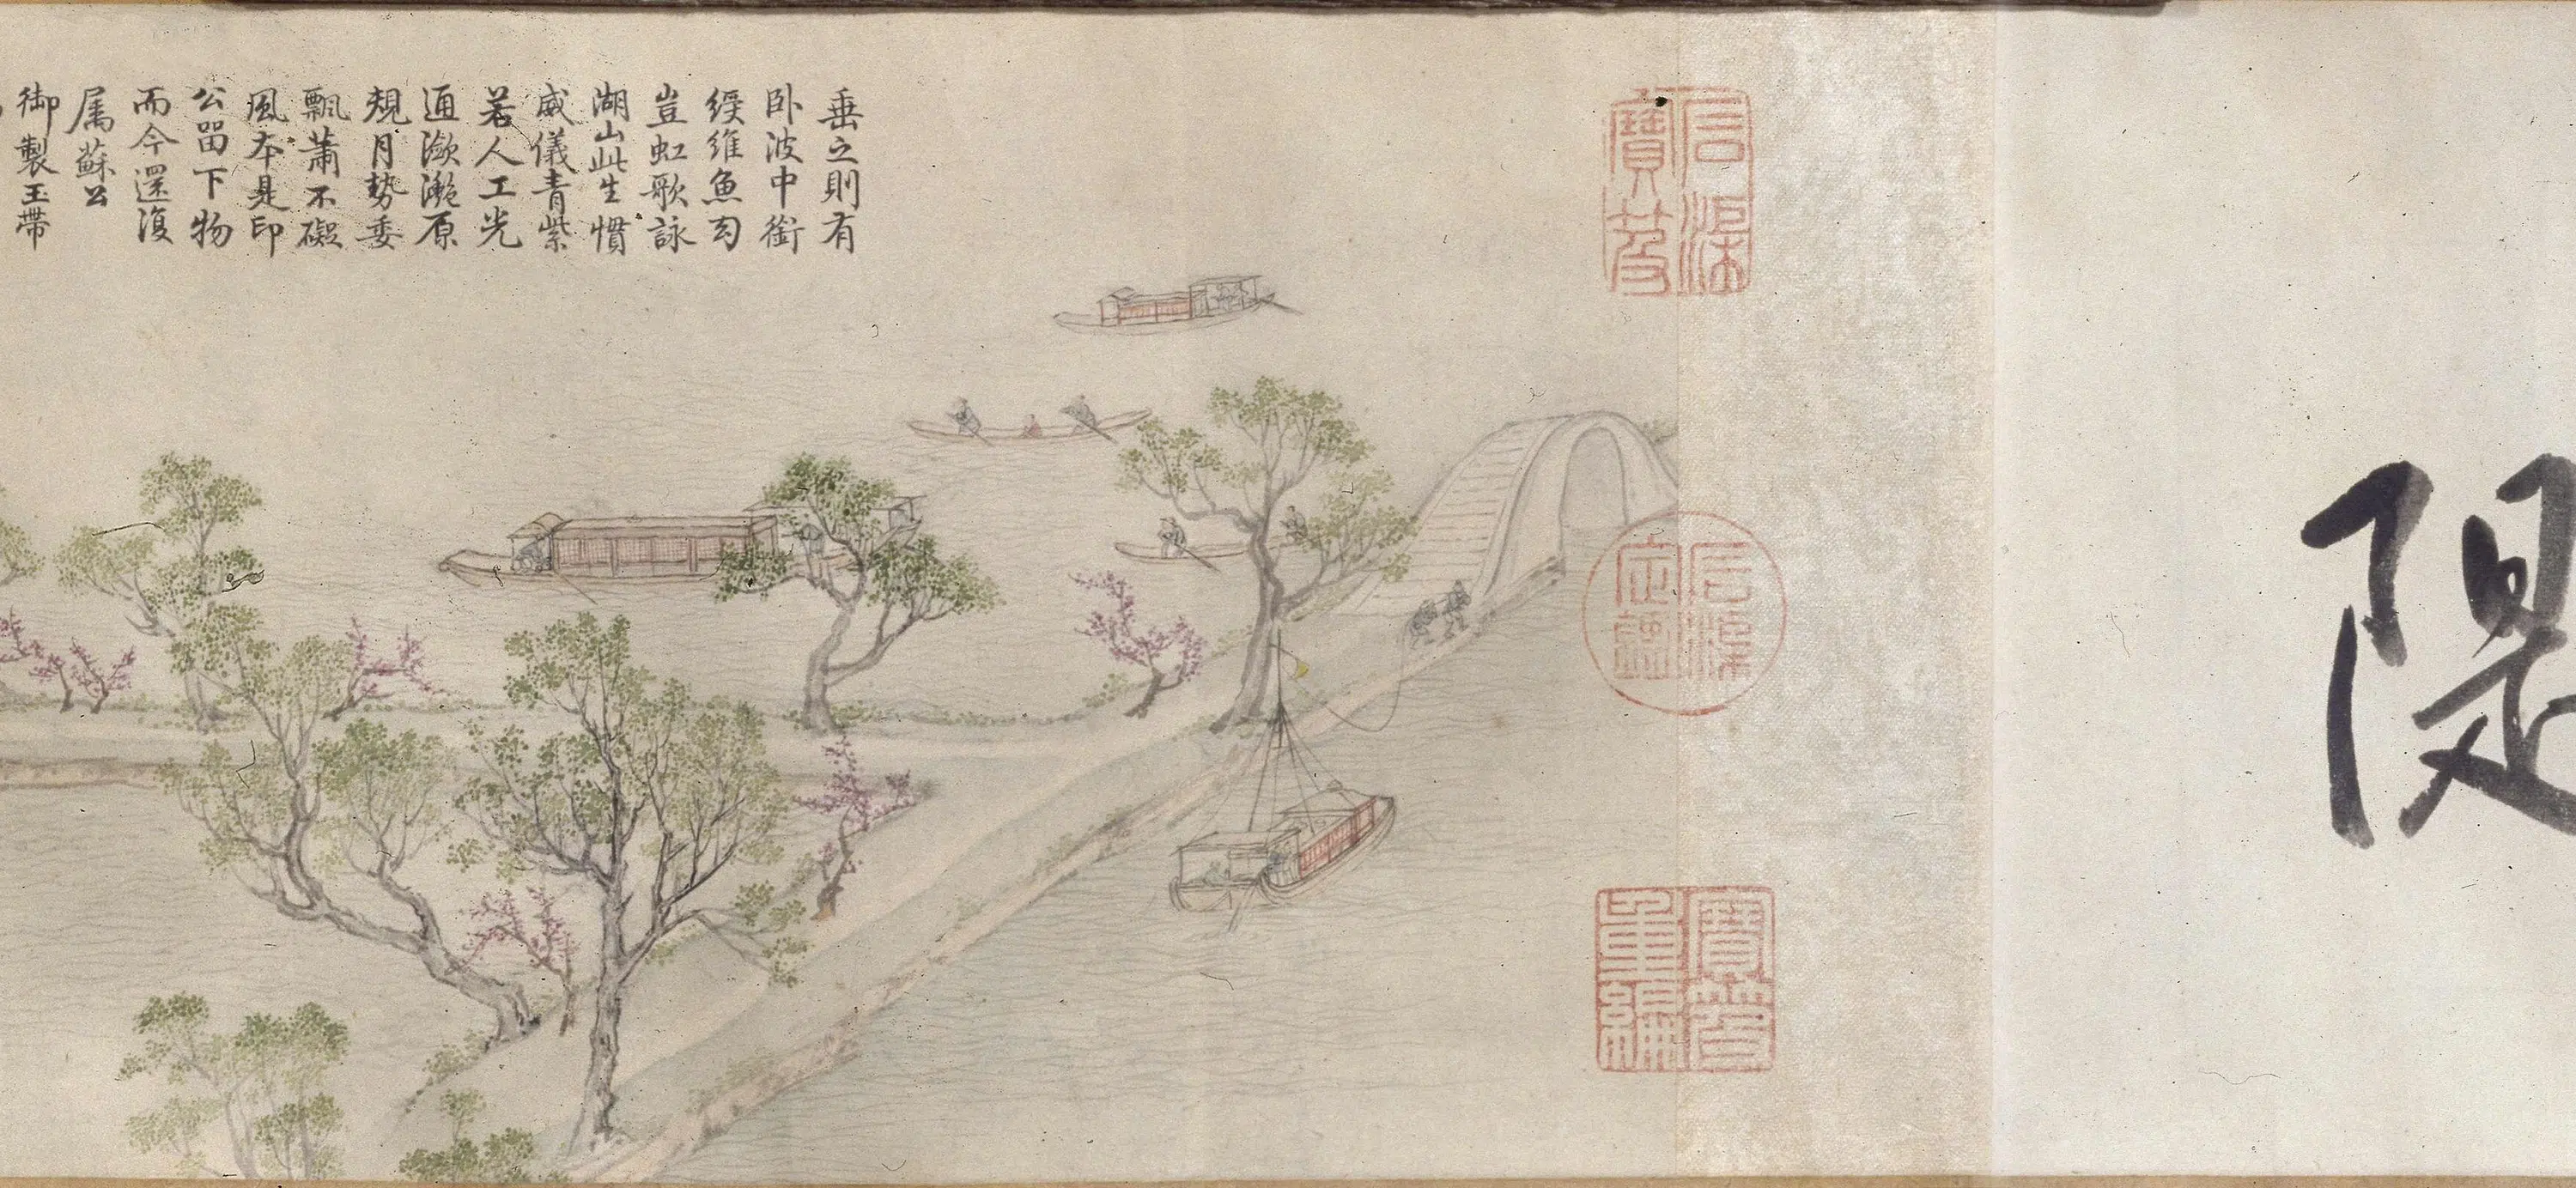 隄
石渠寶笈
石渠定鑑
寶笈重編
垂之則有
卧波中銜
綬維魚勾
豈虹歌詠
湖山此生慣
威儀青紫
若人工光
通瀲灩原
規月勢委
飄蕭不礙
風本是印
公留下物
而今還復
属蘇公
御製玉帶